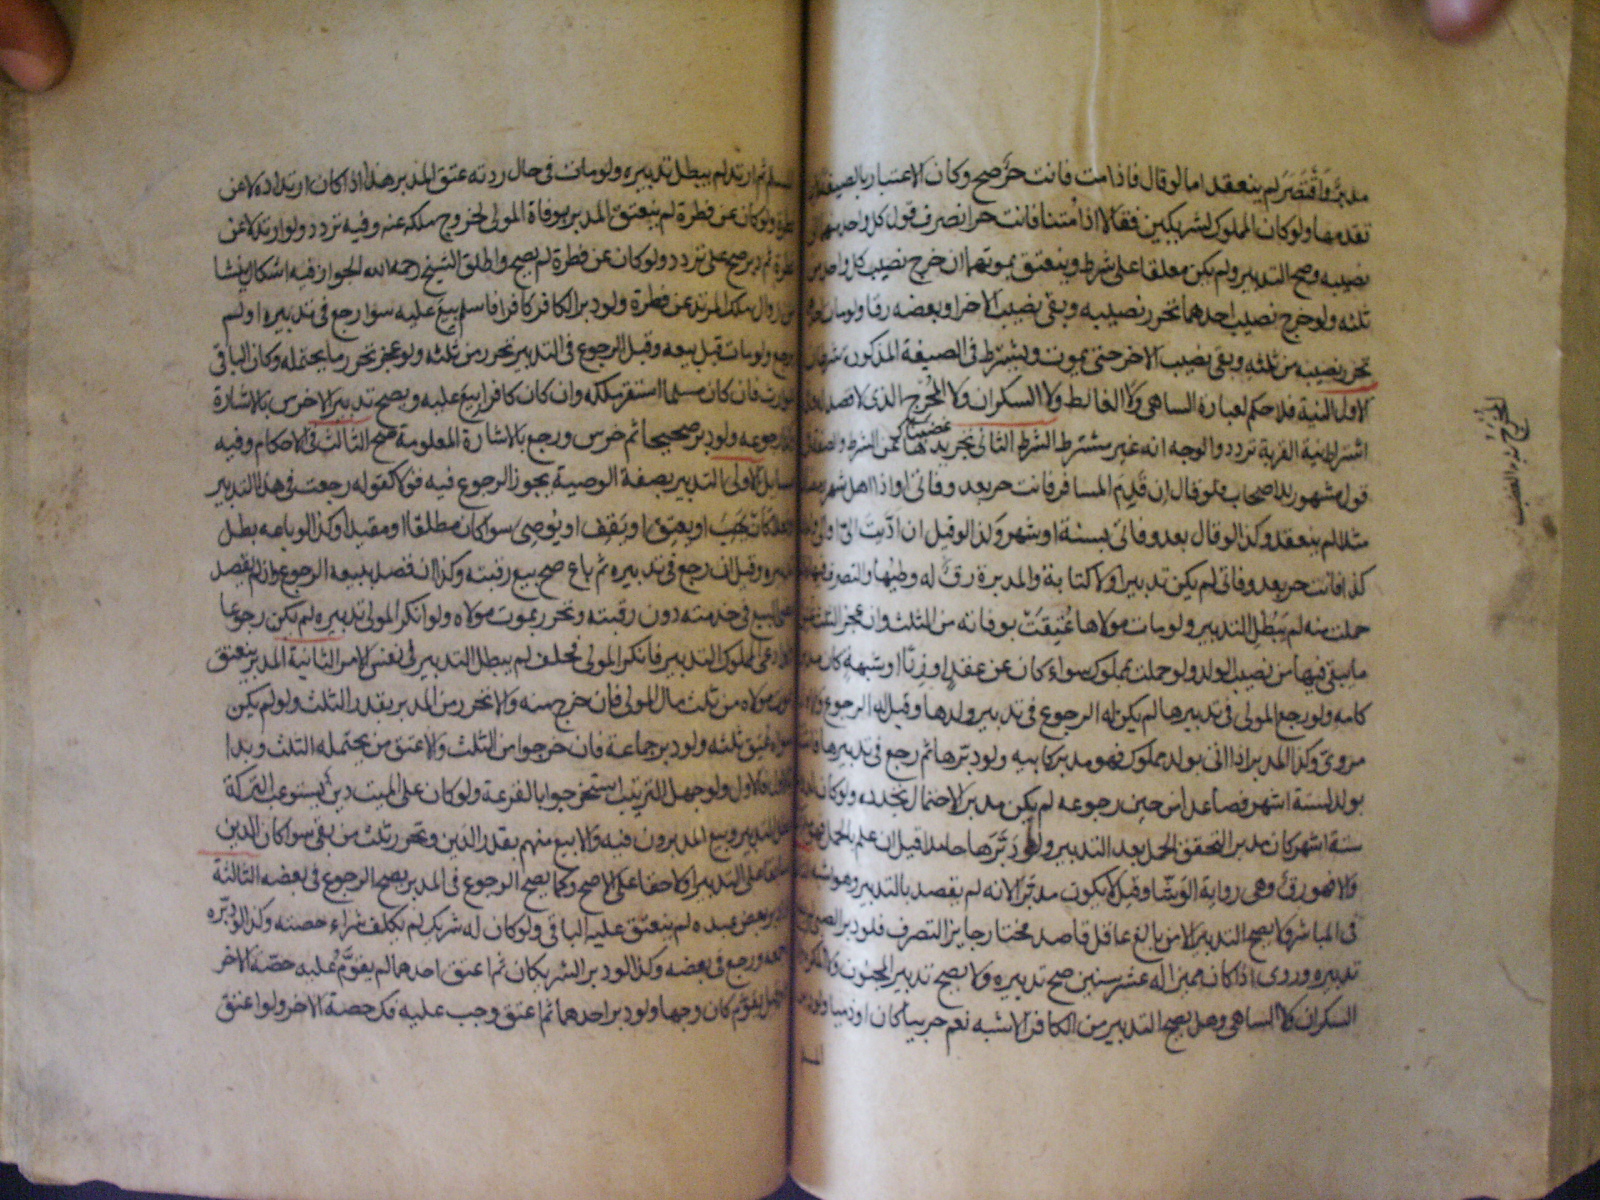 مدبر واقتصر لم ينعقد اما لو قال فاذا مت فانت حر صح وكان الاعتبار بالصيغة
تقدمها ولو كان المملوك لشريكين فقالا اذا متنا فانت حر انصرف قول كل واحد منهما
نصيبه وصح التدبير ولم يكن معلقا على شرط وينعتق بموتهما ان خرج نصيب كل واحد من
ثلثه ولو خرج نصيب احدهما تحرر نصيبه وبقى نصيب الاخر او بعضه رقا ولو مات
تحرر نصيبه من ثلثه وبقى نصيب الاخر حتى يموت ويشترط فى الصيغة المذكورة شرطان
الاول النية فلا حكم لعبارة الساهى ولا الغالط ولا السكران ولا المحرج الذى لا قصد له
اشتراط نية القربة تردد والوجه انه غير مشترط الشرط الثانى تجريدها عن الشرط والصفة
قول مشهور للاصحاب فلو قال ان قدم المسافر فانت حر بعد وفاتى او اذا اهل شهر
مثلا لم ينعقد وكذا لو قال بعد وفاتى بسنة او شهر وكذا لو قيل ان اديت الى او الى
كذا فانت حر بعد وفاتى لم يكن تدبيرا ولا كتابة والمدبرة رق له وطيها والتصرف فيها
حملت منه لم يبطل التدبير ولو مات مولاها عتقت بوفاته من الثلث وان عجز الثلث
ما بقى فيها من نصيب الولد ولو حملت بمملوك سواء كان عن عقد او زنا او شبهة كان مدبرا
كامه ولو رجع المولى فى تدبيرها لم يكن له الرجوع فى تدبير ولدها وقيل له الرجوع
مروى وكذا المدبر اذا اتى بولد مملوك فهو مدبر كابيه ولو دبرها ثم رجع فى تدبيرها
بولد لستة اشهر فصاعدا من حين رجوعه لم يكن مدبرا لاحتمال تجدده ولو كان
ستة اشهر كان مدبرا لتحقق الحمل بعد التدبير ولو دبرها حاملا قيل ان علم بالحمل فهو
ولا فهو رق وهى رواية الوشا وقيل لا يكون مدبرا لانه لم يقصد بالتدبير وهو اشبه
فى المباشر ولا يصح التدبير الا من بالغ عاقل قاصد مختار جايز التصرف فلو دبر الصبى
تدبيره وروى اذا كان مميزا له عشر سنين صح تدبيره ولا يصح تدبير المجنون ولا المكره
السكران ولا الساهى وهل يصح التدبير من الكافر الاشبه نعم حربيا كان او ذميا ولو دبر
المسلم ثم ارتد لم يبطل تدبيره ولو مات فى حال ردته عتق المدبر هذا اذا كان ارتداده لا عن
فطرة ولو كان عن فطرة لم ينعتق المدبر بوفاة المولى لخروج ملكه عنه وفيه تردد ولو ارتد لا عن
فطرة ثم دبر صح على تردد ولو كان عن فطرة لم يصح واطلق الشيخ رحمه الله الجواز فيه اشكال ينشا
من زوال ملك المرتد عن فطرة ولو دبر الكافر كافرا فاسلم بيع عليه سوا رجع فى تدبيره او لم
يرجع ولو مات قبل بيعه وقبل الرجوع فى التدبير تحرر من ثلثه ولو عجز تحرر ما يحتمله وكان الباقى
للوارث فان كان مسلما استقر ملكه وان كان كافرا بيع عليه ويصح تدبير الاخرس بالاشارة
وكذا رجوعه ولو دبر صحيحا ثم خرس ورجع بالاشارة المعلومة صح الثالث فى الاحكام وفيه
مسايل الاولى التدبير بصفة الوصية يجوز الرجوع فيه قولا كقوله رجعت فى هذا التدبير
وفعلا كان يهب او يعتق او يقف او يوصى سوا كان مطلقا او مقيدا وكذا لو باعه بطل
تدبيره وقيل ان رجع فى تدبيره ثم باع صح بيع رقبته وكذا ان قصد ببيعه الرجوع وان لم يقصد
مضى البيع فى خدمته دون رقبته وتحرر بموت مولاه ولو انكر المولى تدبيره لم يكن رجوعا
ولو ادعى المملوك التدبير فانكر المولى فحلف لم يبطل التدبير فى نفس الامر الثانية المدبر ينعتق
بموت مولاه من ثلث مال المولى فان خرج منه والا تحرر من المدبر بقدر الثلث ولو لم يكن
سواه عتق ثلثه ولو دبر جماعة فان خرجوا من الثلث والا عتق من يحتمله الثلث وبدا
بالاول فالاول ولو جهل الترتيب استخرجوا بالقرعة ولو كان على الميت دين يستوعب التركة
بطل التدبير وبيع المدبرون فيه والا بيع منهم بقدر الدين وتحرر ثلث من بقى سوا كان الدين
سابقا على التدبير او لاحقا على الاصح وكما يصح الرجوع فى المدبر يصح الرجوع فى بعضه الثالثة
اذا دبر بعض عبده لم ينعتق عليه الباقى ولو كان له شريك لم يكلف شراء حصته وكذا لو دبره
جمعه ورجع فى بعضه وكذا لو دبر الشريكان ثم اعتق احدهما لم يقوم عليه حصة الاخر
ولو قيل يقوم كان وجها ولو دبر احدهما ثم اعتق وجب عليه فك حصة الاخر ولو اعتق